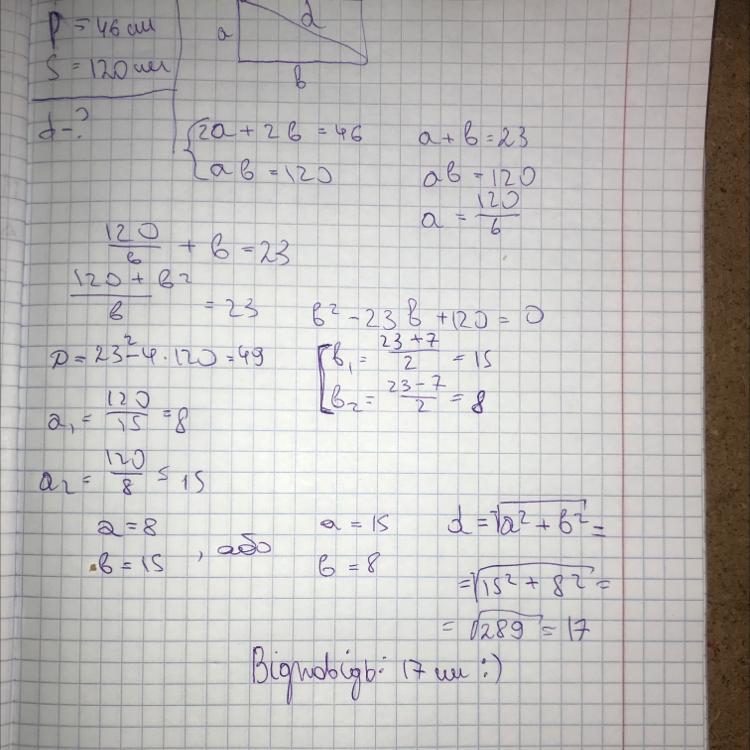 P = 46 см
S = 120 см
d - ?
a d
в
{ 2a + 2в = 46
aв = 120
a + в = 23
aв = 120
a = 120/в
120/в + в = 23
(120 + в²)/в = 23
в² - 23в + 120 = 0
D = 23² - 4 · 120 = 49
[ в₁ = (23 + 7)/2 = 15
в₂ = (23 - 7)/2 = 8
a₁ = 120/15 = 8
a₂ = 120/8 = 15
a = 8
в = 15
, або
a = 15
в = 8
d = √(a² + в²) =
= √(15² + 8²) =
= √289 = 17
Відповідь: 17 см :)